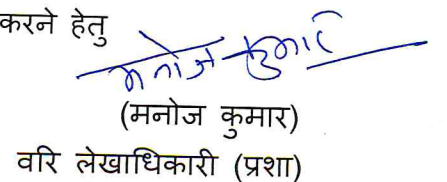 करने हेतु
मनोज कुमार
(मनोज कुमार)
वरि लेखाधिकारी (प्रशा)